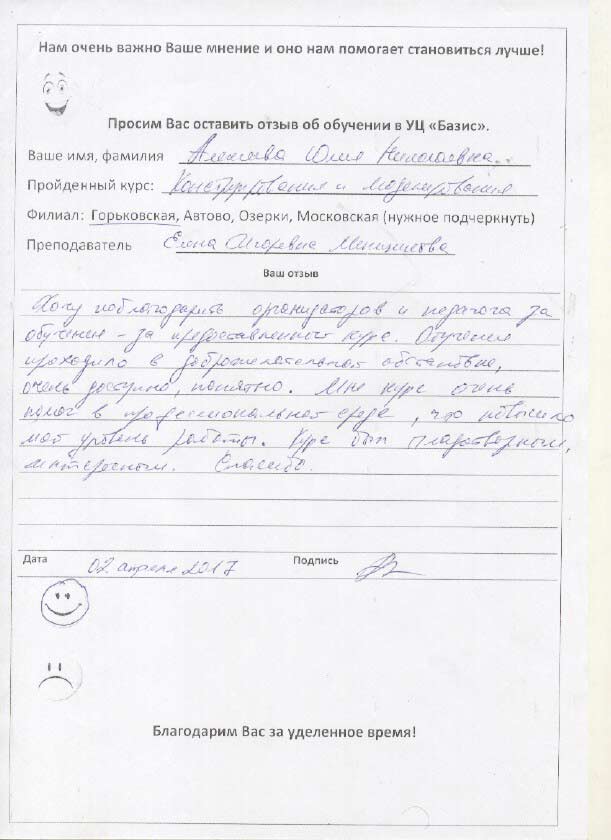 Нам очень важно Ваше мнение и оно нам помогает становиться лучше!
Просим Вас оставить отзыв об обучении в УЦ «Базис».
Ваше имя, фамилия Юлия Николаевна
Пройденный курс: Конструирования и моделирования
Филиал: Горьковская, Автово, Озерки, Московская (нужное подчеркнуть)
Преподаватель Елена Игоревна
Ваш отзыв
Хочу поблагодарить организаторов и педагога за
обучение - за предоставленный курс. Обучение
проходило в доброжелательной обстановке,
очень доступно, понятно. Мне курс очень
помог в профессиональной среде, что повысило
мой уровень работы. Курс был плодотворным,
интересным. Спасибо.
Дата 02 апреля 2017 Подпись
Благодарим Вас за уделенное время!